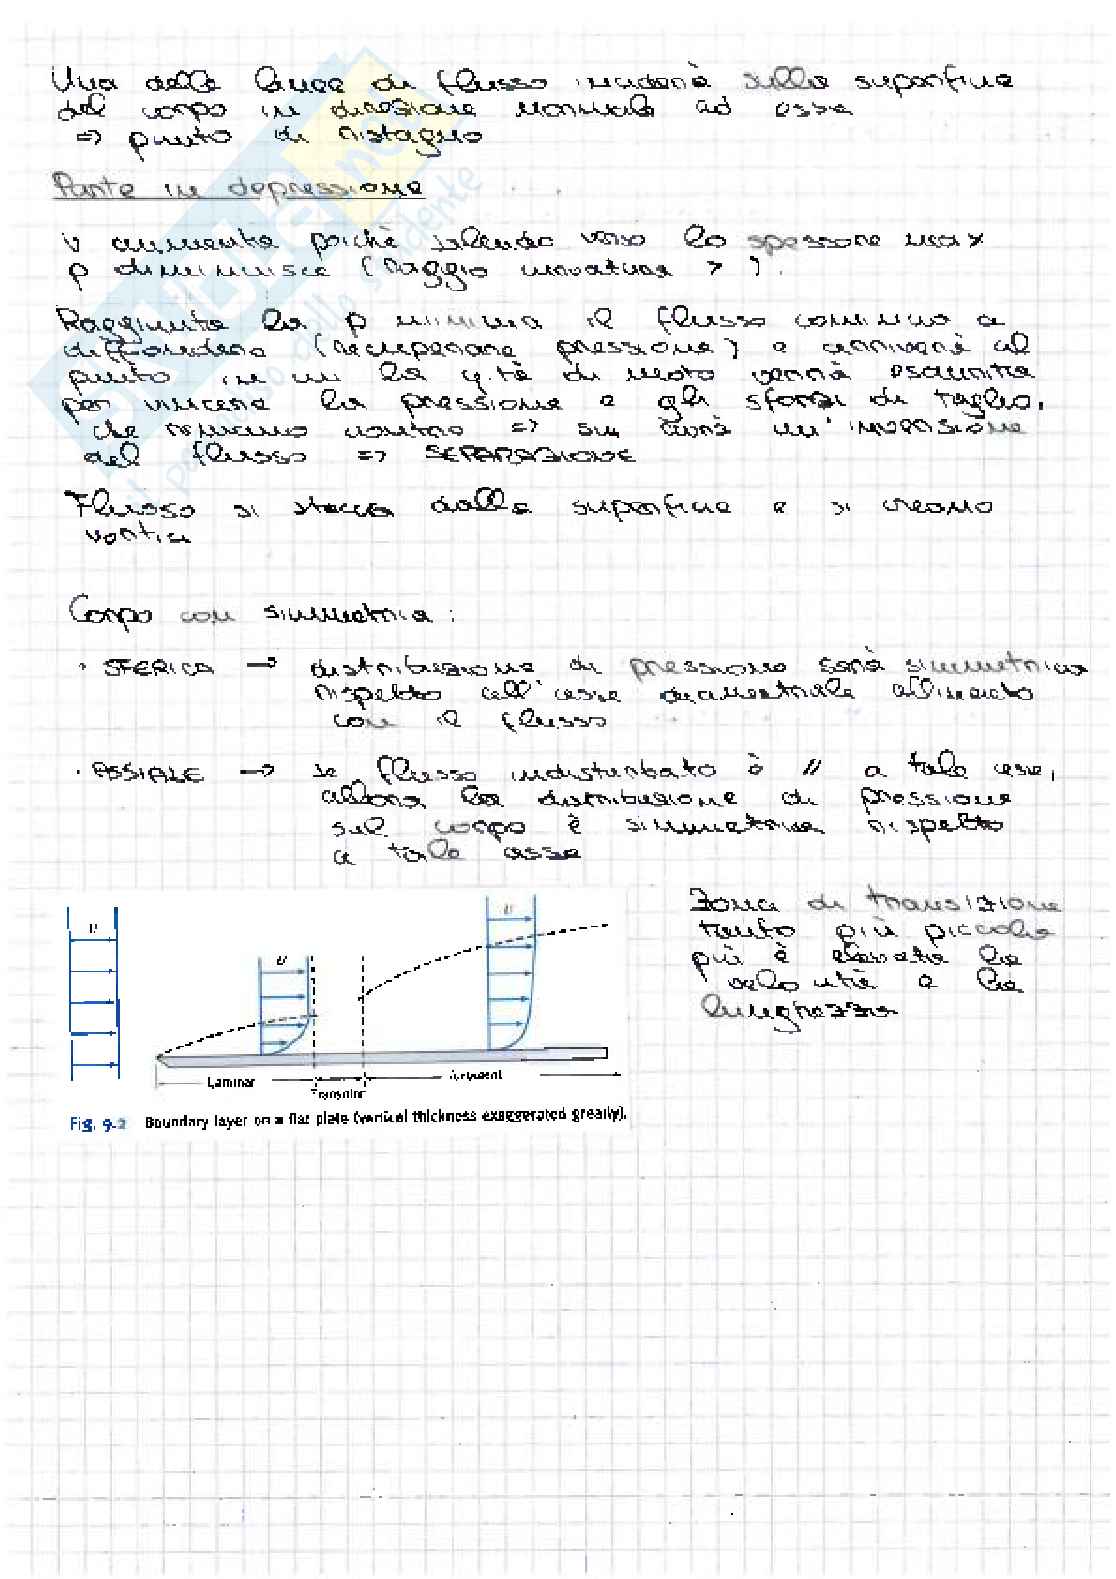 Una delle linee di flusso inciderà sulla superficie
del corpo in direzione normale ad essa
=> punto di ristagno
Parte in depressione
v aumenta poichè salendo verso lo spessore max
p diminuisce (raggio curvatura > ).
Raggiunta la p minima il flusso comincia a
diffondere (recuperare pressione) e arriverà al
punto in cui la q.tà di moto verrà esaurita
per vincere la pressione e gli sforzi di taglio,
che remano contro => si avrà un'inversione
del flusso => SEPARAZIONE
Flusso si stacca dalla superficie e si creano
vortici
Corpo con simmetria :
· SFERICA -> distribuzione di pressione sarà simmetrica
rispetto all'asse diametrale allineato
con il flusso
· ASSIALE -> se flusso indisturbato è // a tale asse,
allora la distribuzione di pressione
sul corpo è simmetrica rispetto
a tale asse
Zona di transizione
tanto più piccola
più è elevata la
velocità e la
lunghezza
U
U
U
Laminar
Transition
Turbulent
Fig. 9-2 Boundary layer on a flat plate (vertical thickness exaggerated greatly).